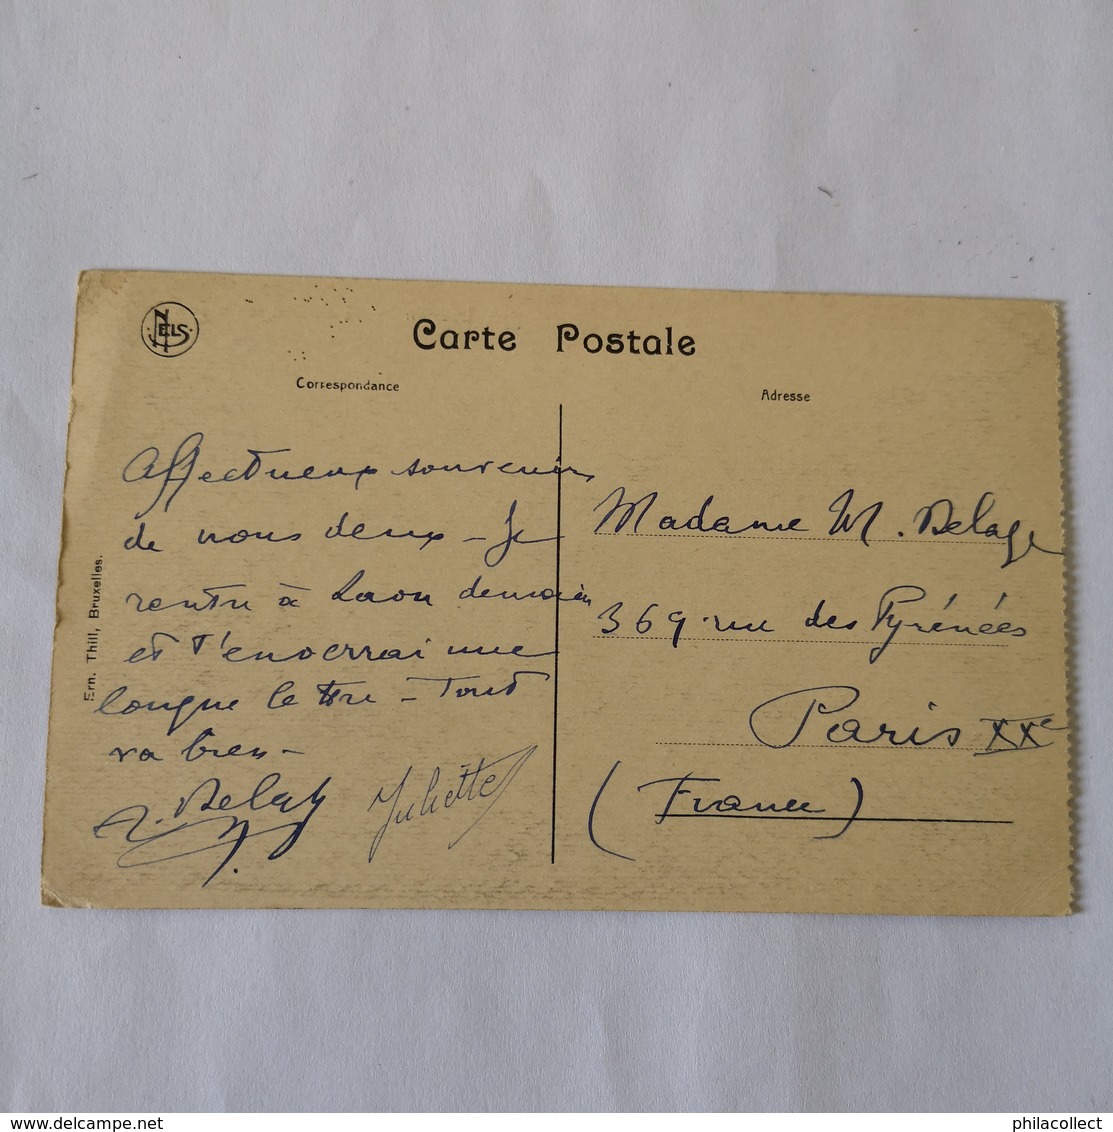 NELS
Carte Postale
Correspondance
Adresse
Ern. Thill, Bruxelles.
Affectueux souvenirs
de nous deux - Je
rentre à Laon demain
et t'enverrai une
longue lettre - Tout
va bien -
Delage
Juliette
Madame M. Delage
369 rue des Pyrénées
Paris XXe
(France)
delcampe.net
philacollect